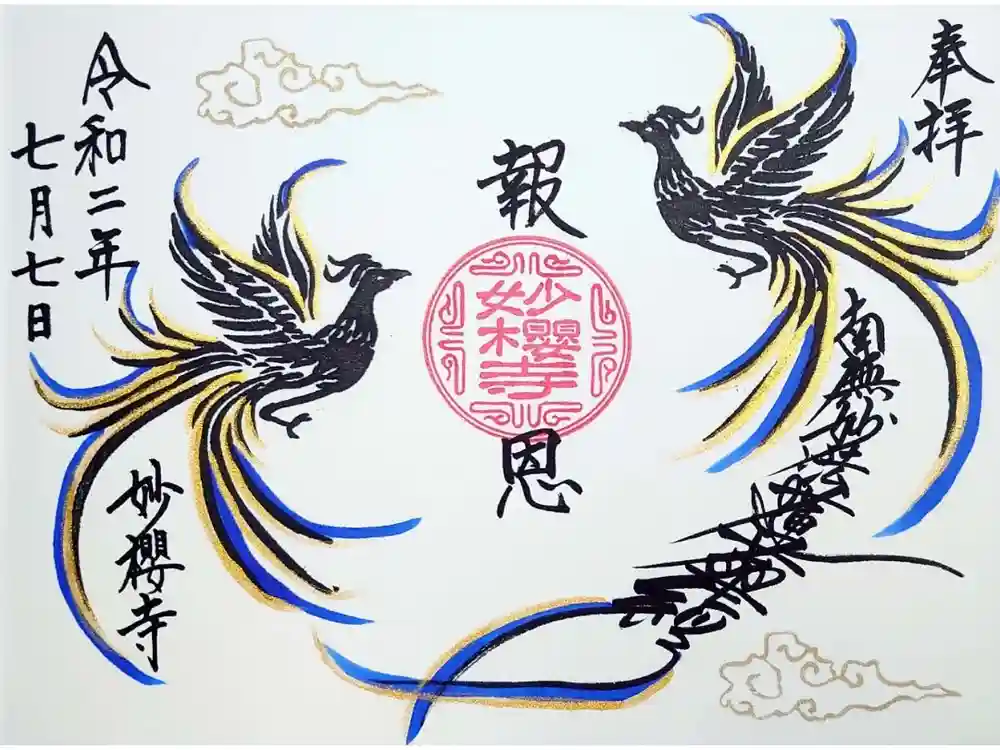 奉拝
報恩
妙櫻寺
南無妙
令和二年
七月七日
妙櫻寺